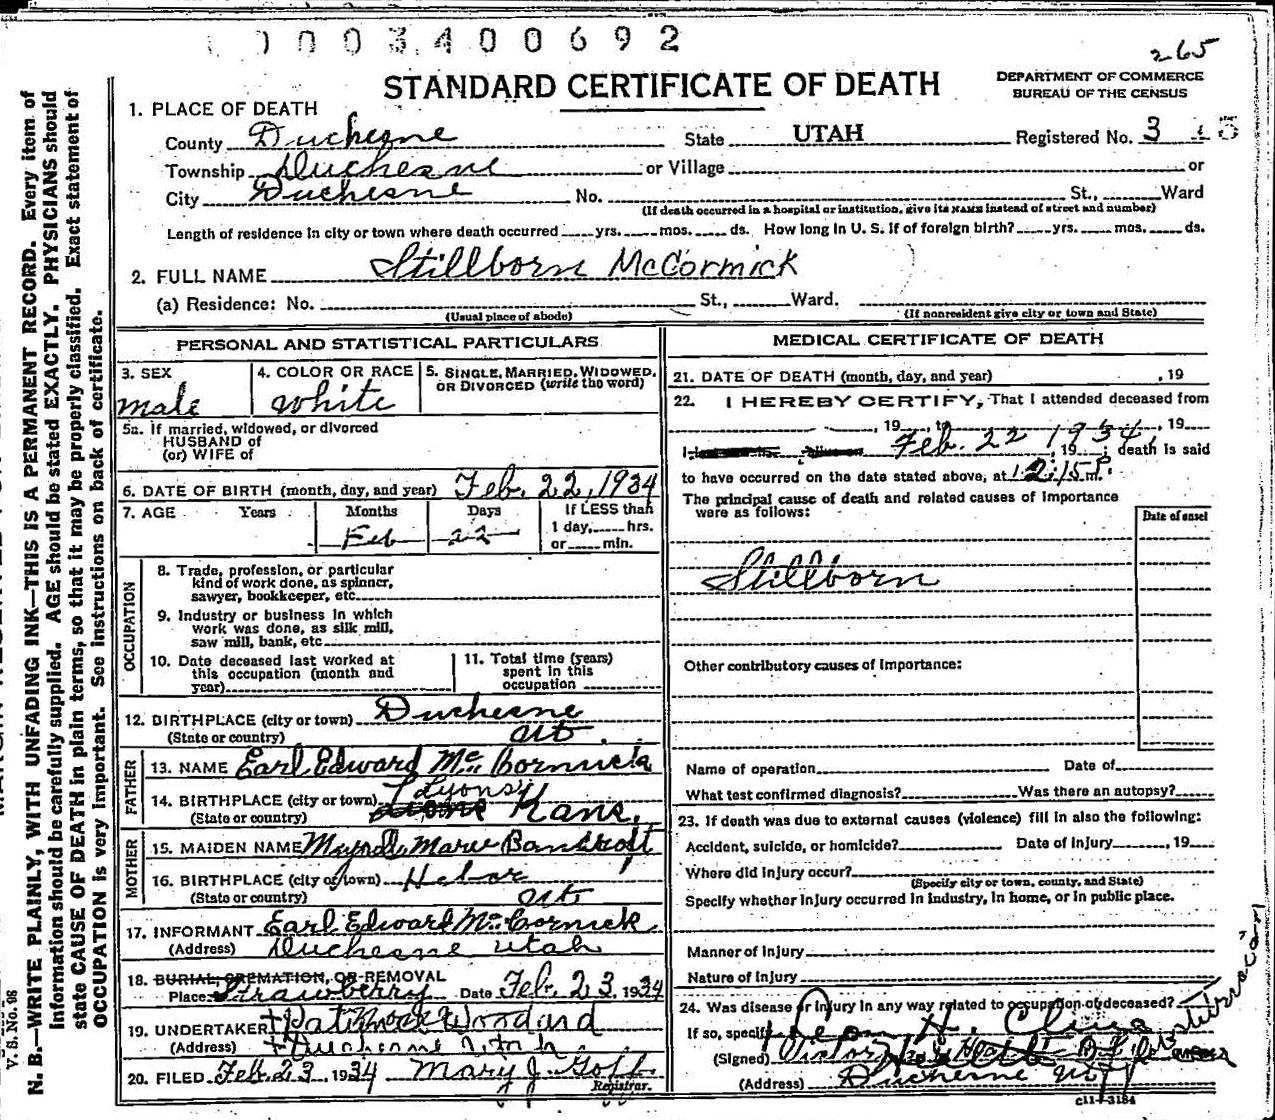 0003400692
265
STANDARD CERTIFICATE OF DEATH
DEPARTMENT OF COMMERCE
BUREAU OF THE CENSUS
1. PLACE OF DEATH
County Duchesne State UTAH Registered No. 3
Township Duchesne or Village or
City Duchesne No. St., Ward
(If death occurred in a hospital or institution, give its NAME instead of street and number)
Length of residence in city or town where death occurred yrs. mos. ds. How long in U. S. if of foreign birth? yrs. mos. ds.
2. FULL NAME Stillborn McCormick
(a) Residence: No. St., Ward.
(Usual place of abode) (If nonresident give city or town and State)
PERSONAL AND STATISTICAL PARTICULARS
3. SEX 4. COLOR OR RACE 5. SINGLE, MARRIED, WIDOWED, OR DIVORCED (write the word)
male white
5a. If married, widowed, or divorced
HUSBAND of
(or) WIFE of
6. DATE OF BIRTH (month, day, and year) Feb. 22, 1934
7. AGE Years Months Days If LESS than
1 day, hrs.
or min.
Feb 22
OCCUPATION
8. Trade, profession, or particular
kind of work done, as spinner,
sawyer, bookkeeper, etc.
9. Industry or business in which
work was done, as silk mill,
saw mill, bank, etc
10. Date deceased last worked at
this occupation (month and
year)
11. Total time (years)
spent in this
occupation
12. BIRTHPLACE (city or town) Duchesne
(State or country) Ut.
FATHER
13. NAME Earl Edward McCormick
14. BIRTHPLACE (city or town) Lyons
(State or country) Kans.
MOTHER
15. MAIDEN NAME Marie Bankcroft
16. BIRTHPLACE (city or town) Heber
(State or country) Ut
17. INFORMANT Earl Edward McCormick
(Address) Duchesne Utah
18. BURIAL, CREMATION, OR REMOVAL
Place Strawberry Date Feb. 23 1934
19. UNDERTAKER Woodard
(Address) Duchesne Utah
20. FILED Feb. 23 1934 Mary J. Goff
Registrar.
MEDICAL CERTIFICATE OF DEATH
21. DATE OF DEATH (month, day, and year) , 19
22. I HEREBY CERTIFY, That I attended deceased from
, 19 , to , 19
Feb. 22 1934, 19 ; death is said
to have occurred on the date stated above, at 12:15 P.m.
The principal cause of death and related causes of importance
were as follows:
Date of onset
Stillborn
Other contributory causes of importance:
Name of operation Date of
What test confirmed diagnosis? Was there an autopsy?
23. If death was due to external causes (violence) fill in also the following:
Accident, suicide, or homicide? Date of injury , 19
Where did injury occur?
(Specify city or town, county, and State)
Specify whether injury occurred in industry, in home, or in public place.
Manner of injury
Nature of injury
24. Was disease or injury in any way related to occupation of deceased?
If so, specify
(Signed)
(Address) Duchesne
C11-3184
N. B.—WRITE PLAINLY, WITH UNFADING INK—THIS IS A PERMANENT RECORD. Every item of
information should be carefully supplied. AGE should be stated EXACTLY. PHYSICIANS should
state CAUSE OF DEATH in plain terms, so that it may be properly classified. Exact statement of
OCCUPATION is very important. See instructions on back of certificate.
V. S. No. 98